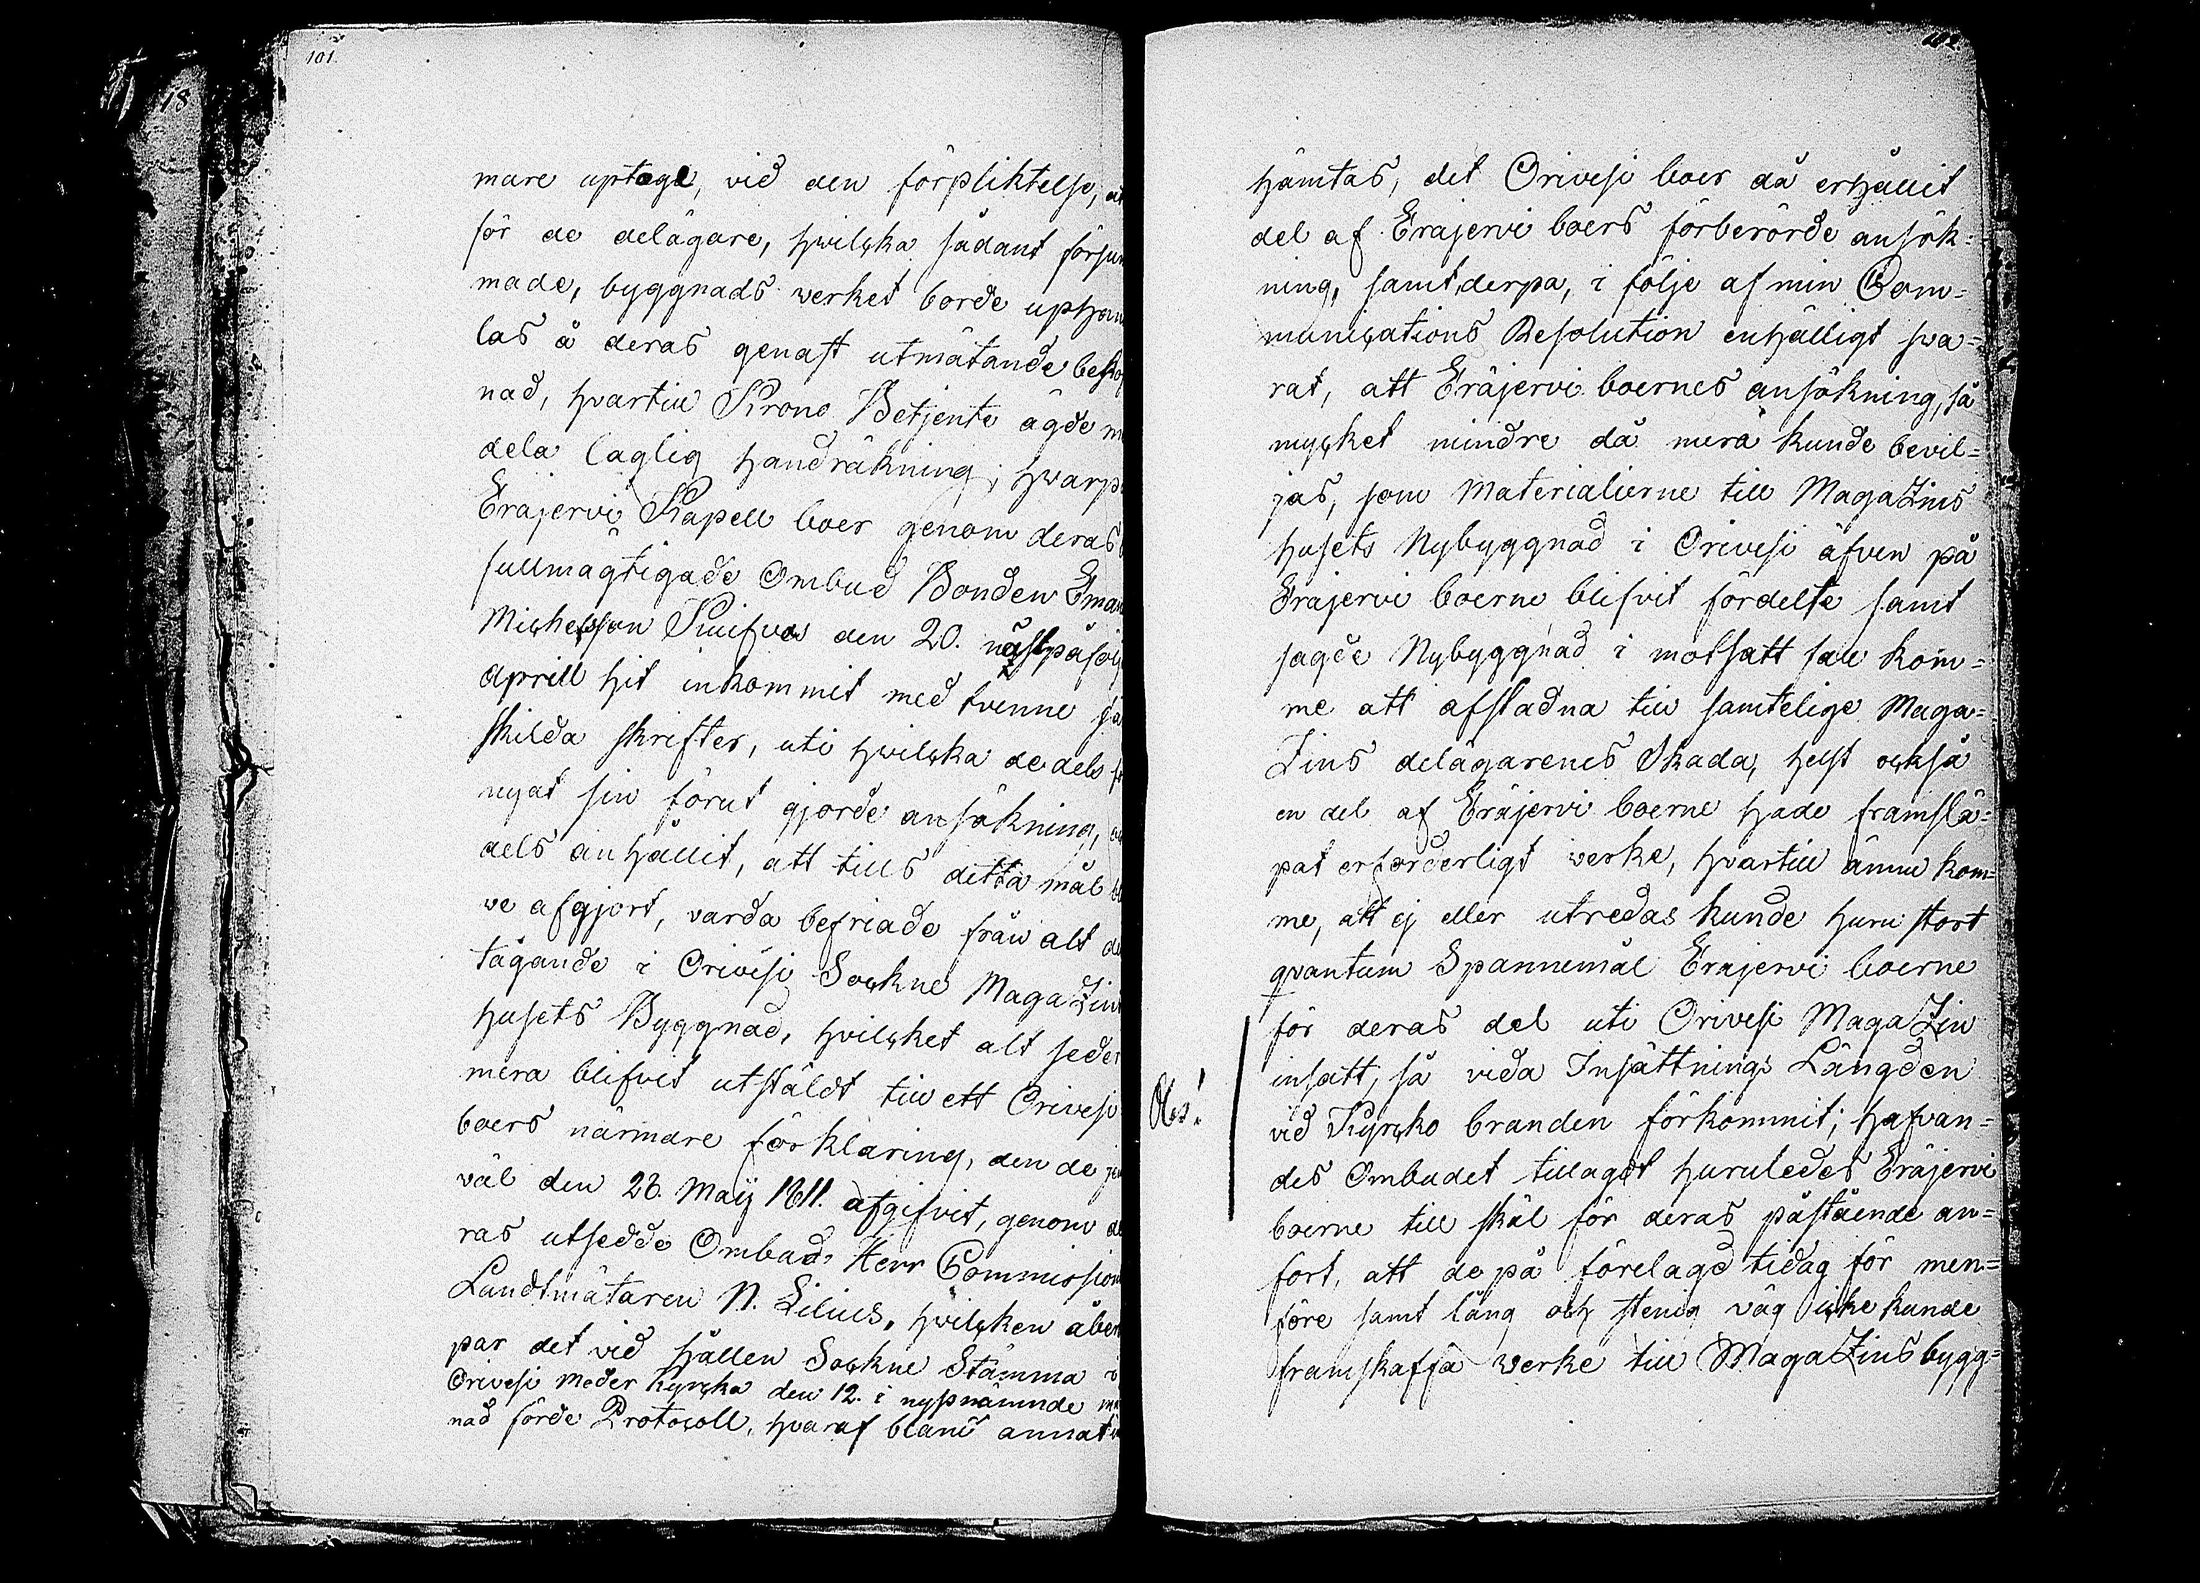 18
101.
mare uptage, vid den förpliktelse, at
för de delägare, hwilcka sådant försum
made, byggnads werket borde uphan
las å deras genast utmätande bekos
nad, hvartill Krono Betjente ägde m
dela laglig handräkning; hwarp
Eräjervi Kapell boer genom deras
fullmägtigade Ombud Bonden Eman
Michelsson den 20. nästpåföl
Aprill hit inkommit med tvenne sär
skilda skrifter, uti hwilcka de dels för
nyat sin förut gjorde ansökning,
dels anhållit, att tills detta mål bl
ve afgjort, varda befriade från alt del
tagande i Orivesi Sockne MagaZins
husets Byggnad, hvilcket alt seder
mera blifvit utstäldt till ett Orivesi
boers närmare förklaring, den de jem
väl den 28. Maij 1811. afgifvit, genom de
ras utsedde Ombud, Herr Commissions
Landtmätaren N. Lilius, hvilcken åbero
par det vid hållen Sockne Stämma i
Orivesi Moder Kyrcka den 12. i nyssnämnde må
nad förde Protocoll, hvaraf bland annat
102.
hämtas, det Orivesi boer då erhållit
del af Eräjervi boers förberörde ansök=
ning, samt derpå, i följe af min Com=
munications Resolution enhälligt swa=
rat, att Eräjervi boernes ansökning, så
mycket mindre då mera kunde bevil=
jas, som Materialierne till MagaZins
husets Nybyggnad i Orivesi äfven på
Eräjervi boerne blifvit fördelte samt
sagde Nybyggnad i motsatt fall kom=
me att afstadna till samtelige Maga=
Zins delägarenes Skada, helst också
en del af Eräjervi boerne hade framslä=
pat erforderligt werke, hvartill ännu kom=
me, att ej eller utredas kunde huru stort
qvantum Spannemål Eräjervi boerne
för deras del uti Orivesi MagaZin
insatt, så vida Insättnings Längden
Obs!
vid Kyrcko branden förkommit; hafvan=
des Ombudet tillagdt huruledes Eräjervi
boerne till skäl för deras påstående an=
fört, att de på förelagd tidag för men=
före samt lång och stenig väg icke kunde
framskaffa werke till MagaZins bygg=